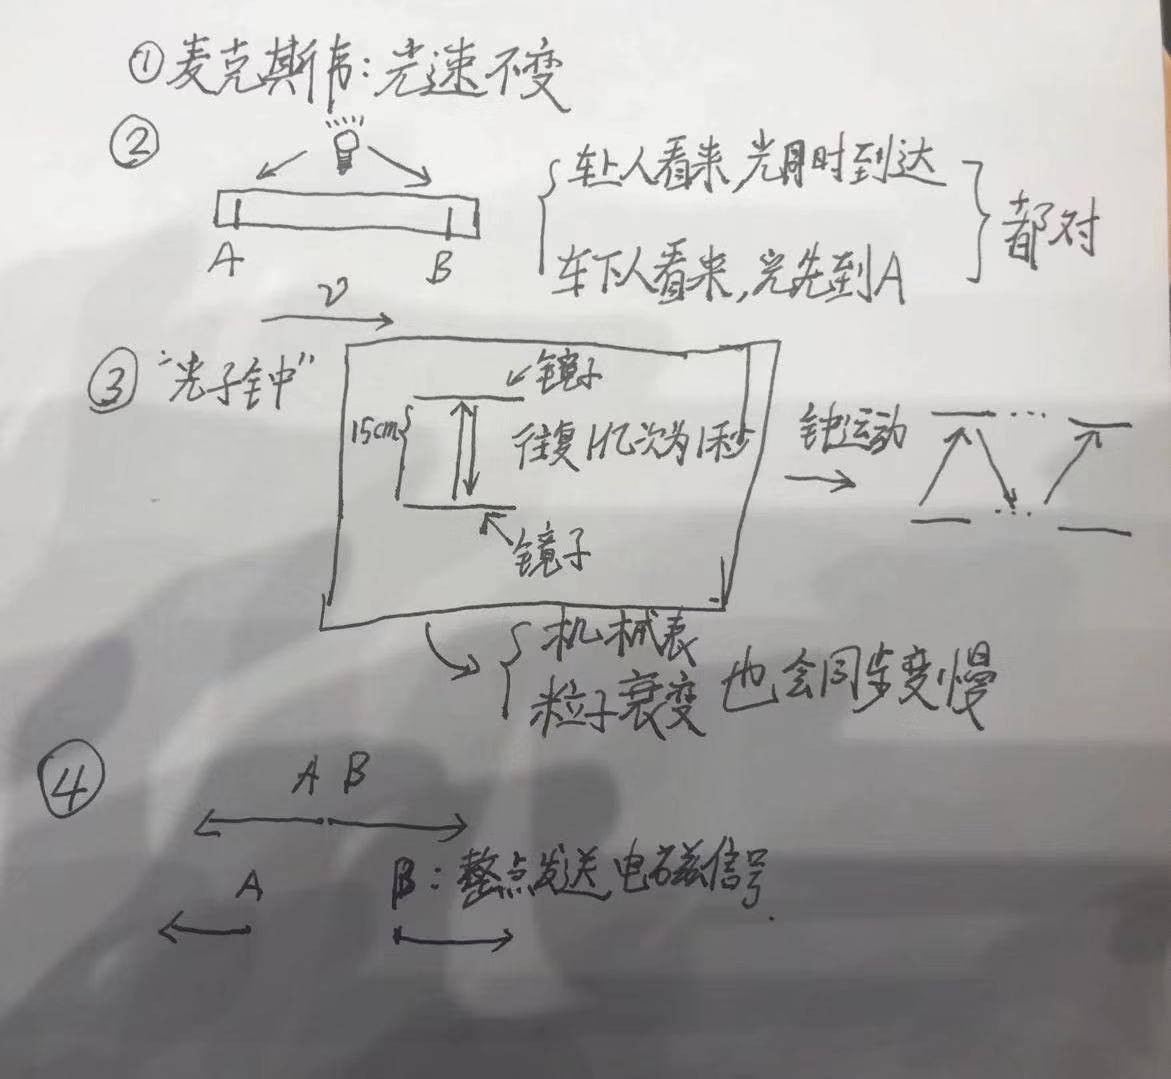 ①麦克斯韦:光速不变
②
A
B
车上人看来,光同时到达
车下人看来,光先到A
都对
v
③“光子钟”
镜子
15cm
往复1亿次为1秒
镜子
钟运动
机械表
粒子衰变
也会同步变慢
④
A B
A
B:整点发送电磁信号.